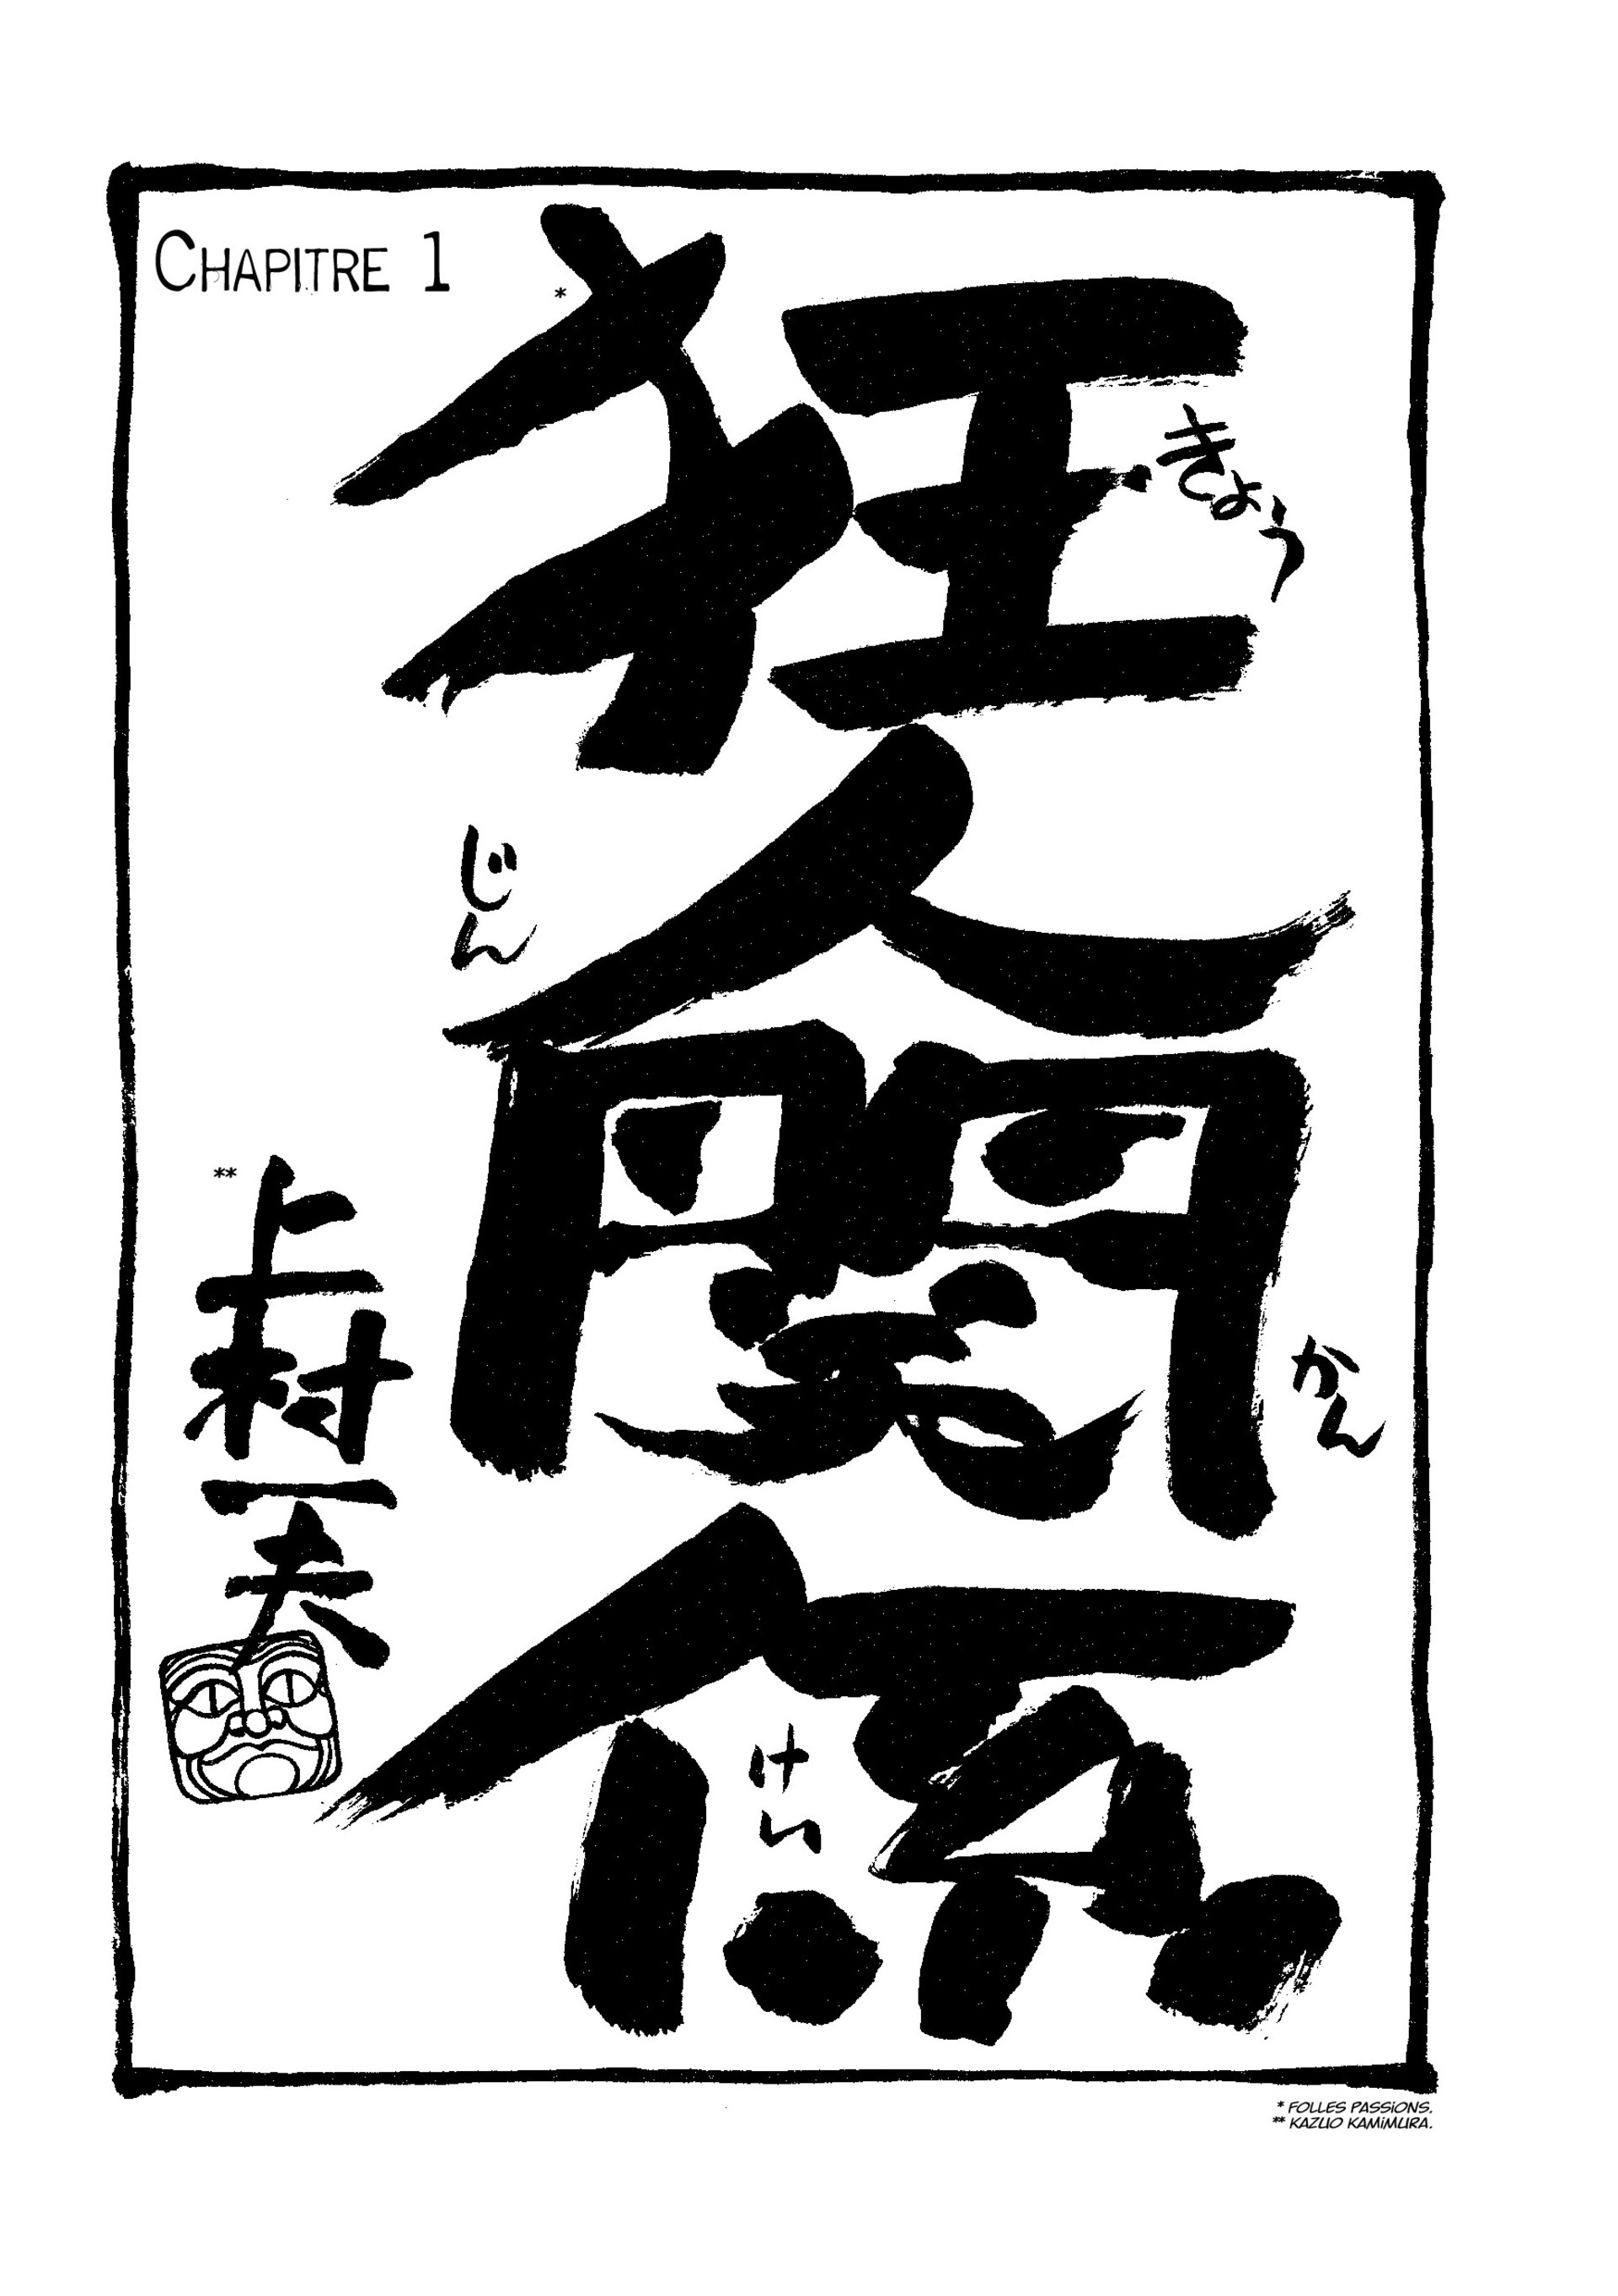 CHAPITRE 1
*
狂人関係
きょう
じん
かん
けい
**
上村一夫
* FOLLES PASSIONS.
** KAZUO KAMIMURA.